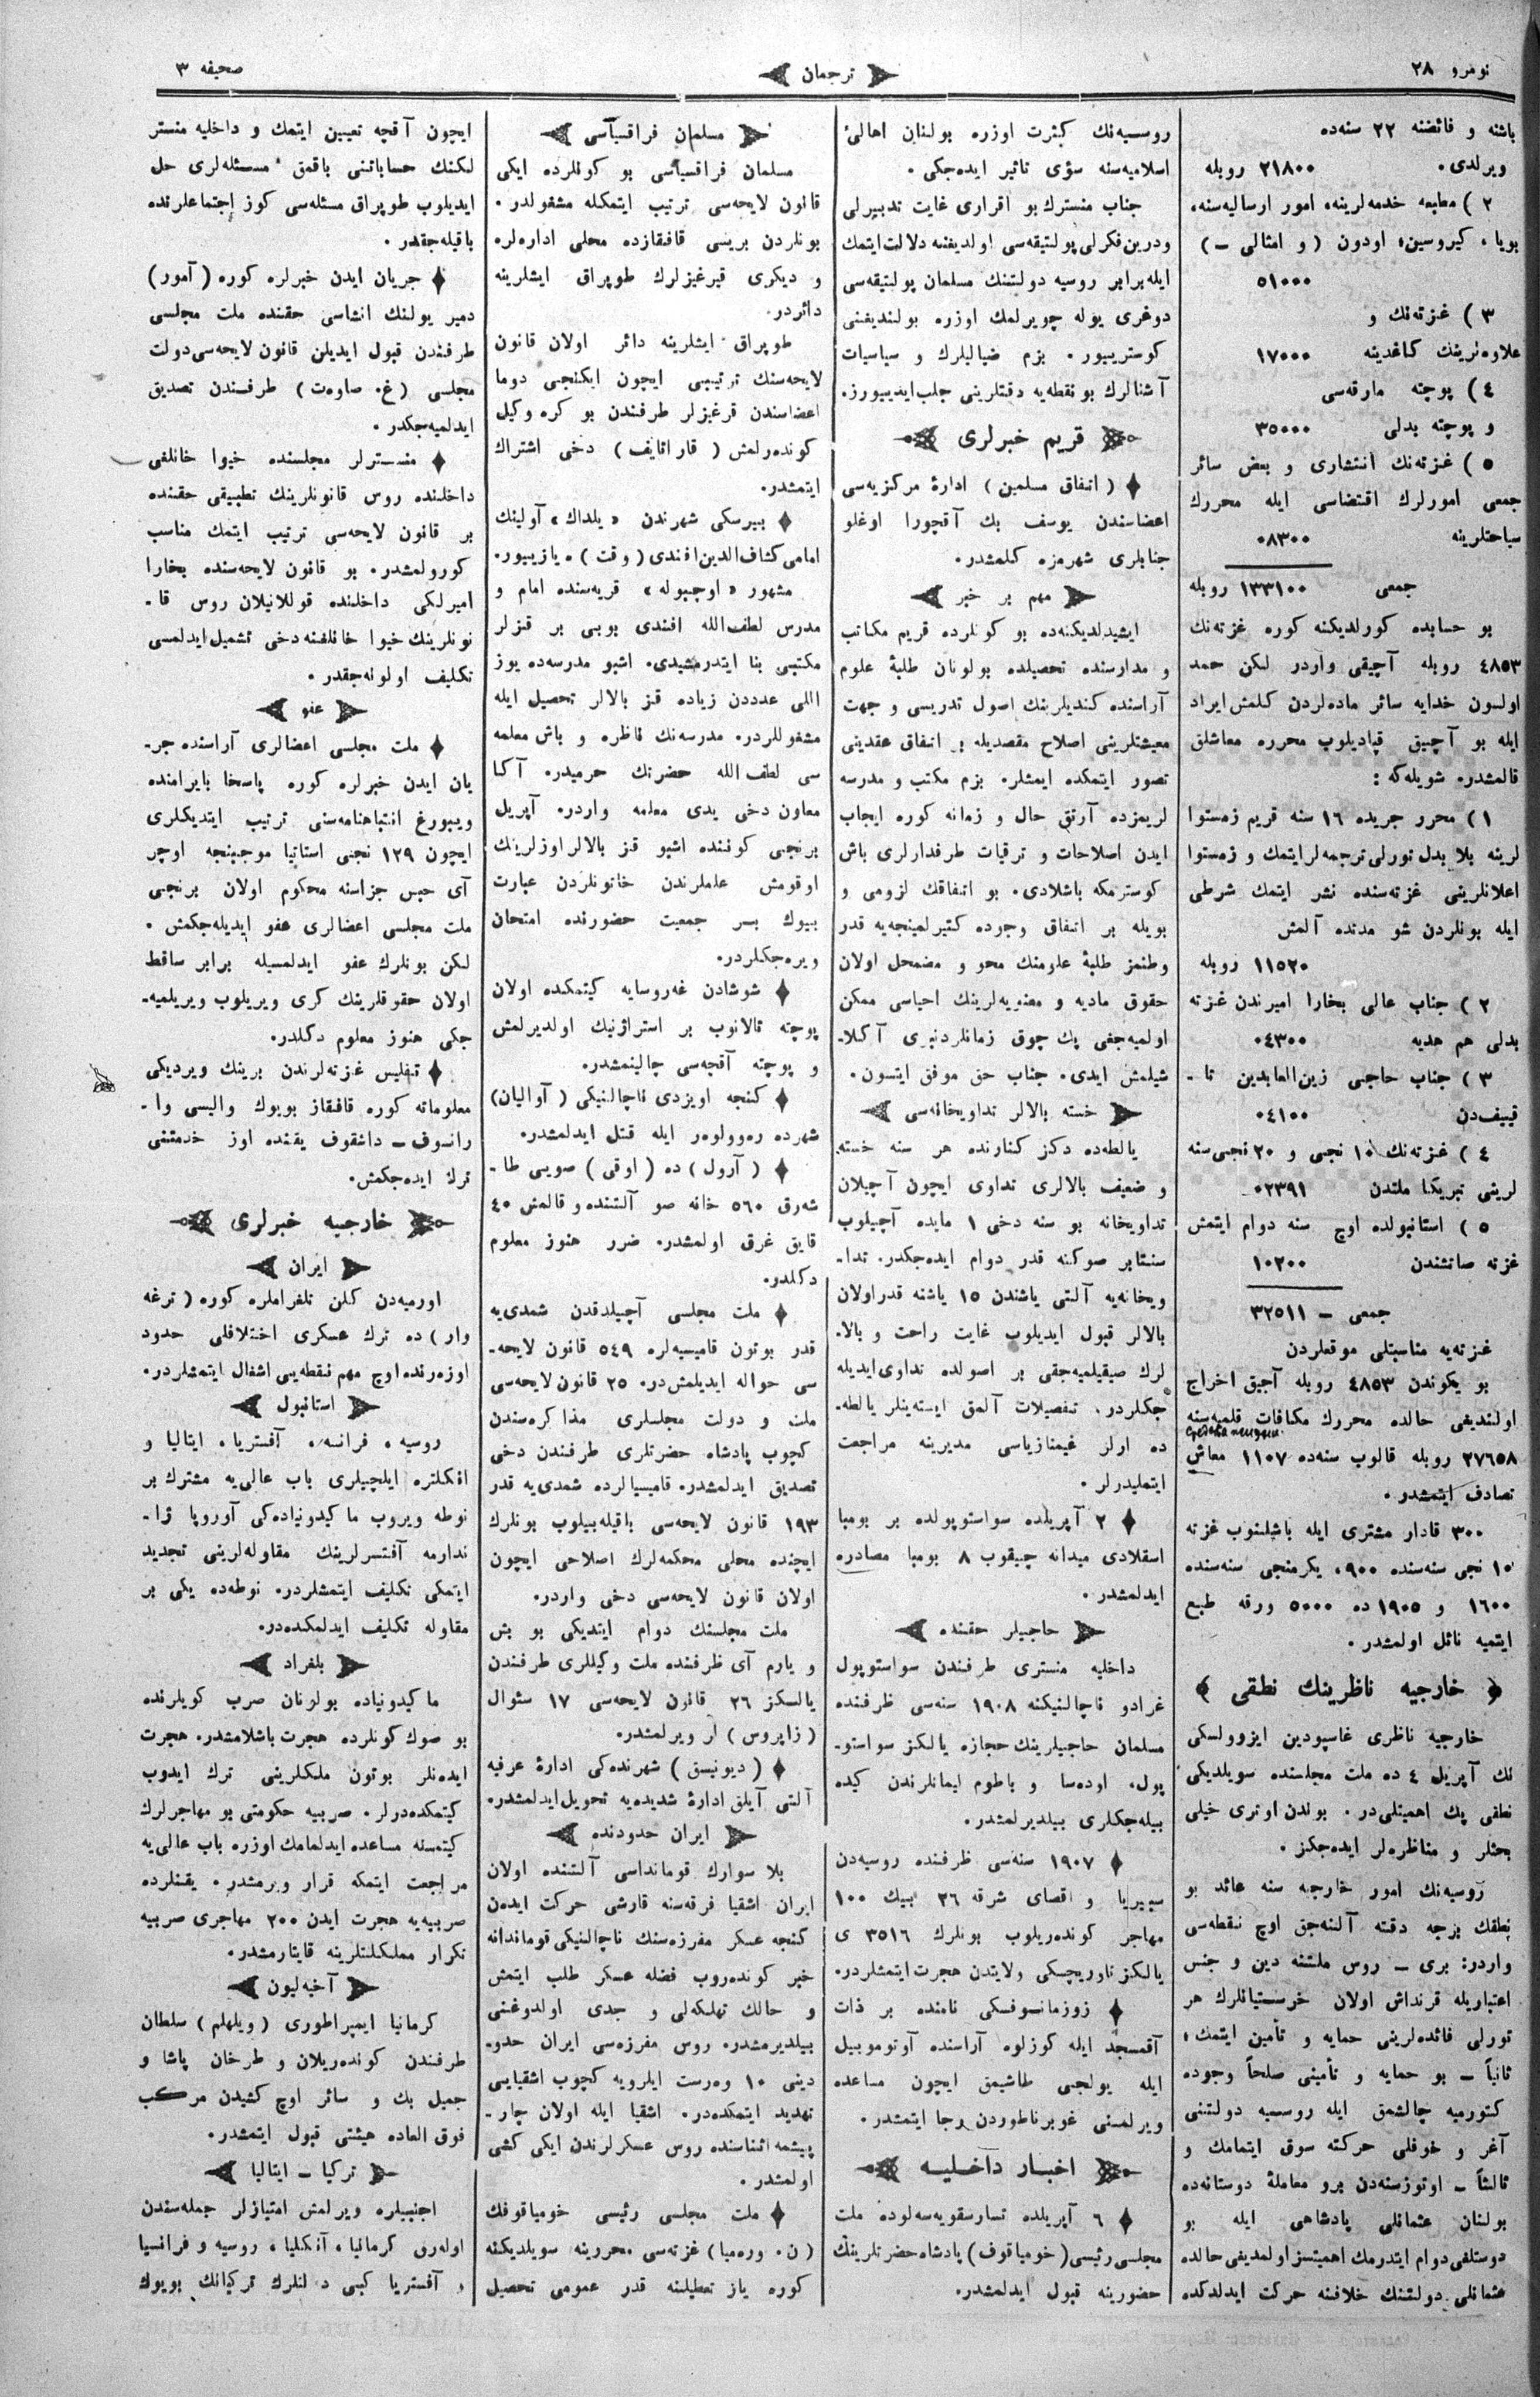 نومرو ٢٨
ترجمان
صحيفه ٣
باشنه و فائضنه ٢٢ سنه‌ده
ويرلدى. ٢١٨٠٠ روبله
٢ ) مطبعه خدمه‌لرينه، امور ارساليه‌سنه،
بويا، كيروسين، اودون ( و امثالى — )
٥١٠٠٠
٣ ) غزته‌نك و
علاوه‌لرينك كاغدينه ١٧٠٠٠
٤ ) پوچته مارقه‌سى
و پوچته بدلى ٣٥٠٠٠
٥ ) غزته‌نك انتشارى و بعض سائر
جمعى امورلرك اقتضاسى ايله محررك
سياحتلرينه ٠٨٣٠٠
جمعى ١٣٣١٠٠ روبله
بو حسابده كورلديكنه كوره غزته‌نك
٤٨٥٣ روبله آچيقى واردر لكن حمد
اولسون خدايه سائر ماده‌لردن كلمش ايراد
ايله بو آچيق قپاديلوب محرره معاشلق
قالمشدر. شويله‌كه :
١ ) محرر جريده ١٦ سنه قريم زمستوا
لرينه بلا بدل تورلى ترجمه‌لر ايتمك و زمستوا
اعلانلرينى غزته‌سنده نشر ايتمك شرطى
ايله بونلردن شو مدتده آلمش
١١٥٢٠ روبله
٢ ) جناب عالى بخارا اميرندن غزته
بدلى هم هديه ٠٤٣٠٠
٣ ) جناب حاجى زين‌العابدين تا-
قييف‌دن ٠٤١٠٠
٤ ) غزته‌نك ١٠ نجى و ٢٠ نجى سنه
لرينى تبريكا ملتدن ٠٢٣٩١
٥ ) استانبولده اوچ سنه دوام ايتمش
غزته صاتشندن ١٠٢٠٠
جمعى — ٣٢٥١١
غزته‌يه مناسبتلى موقعلردن
بو يكوندن ٤٨٥٣ روبله آجيق اخراج
اولنديغى حالده محررك مكافات قلميه‌سنه
٢٧٦٥٨ روبله قالوب سنه‌ده ١١٠٧ معاش
تصادف ايتمشدر.
٣٠٠ قادار مشترى ايله باشلنوب غزته
١٠ نجى سنه‌سنده ٩٠٠، يكرمنجى سنه‌سنده
١٦٠٠ و ١٩٠٥ ده ٥٠٠٠ ورقه طبع
ايتميه نائل اولمشدر.
خارجيه ناظرينك نطقى
خارجيه ناظرى غاسپودين ايزوولسكى
نك آپريل ٤ ده ملت مجلسنده سويلديكى
نطقى پك اهميتلى‌در. بوندن اوترى خيلى
بحثلر و مناظره‌لر ايده‌جكز.
روسيه‌نك امور خارجيه سنه عائد بو
نطقك بزجه دقته آلنه‌جق اوچ نقطه‌سى
واردر: برى — روس ملتنه دين و جنس
اعتباريله قرنداش اولان خرستيانلرك هر
تورلى فائده‌لرينى حمايه و تأمين ايتمك؛
ثانياً — بو حمايه و تأمينى صلحاً وجوده
كتورميه چالشمق ايله روسيه دولتنى
آغر و خوفلى حركته سوق ايتمامك و
ثالثاً — اوتوز سنه‌دن برو معاملۀ دوستانه‌ده
بولنان عثمانلى پادشاهى ايله بو
دوستلغى دوام ايتدرمك اهميتسز اولمديغى حالده
عثمانلى دولتنك خلافنه حركت ايدلدكده
روسيه‌نك كثرت اوزره بولنان اهالئ
اسلاميه‌سنه سؤى تاثير ايده‌جكى.
جناب منسترك بو اقرارى غايت تدبيرلى
و درين فكرلى پولتيقه‌سى اولديغنه دلالت ايتمك
ايله برابر روسيه دولتنك مسلمان پولتيقه‌سى
دوغرى يوله چويرلمك اوزره بولنديغنى
كوستريبور. بزم ضياليلرك و سياسيات
آشنالرك بو نقطه‌يه دقتلرينى جلب ايديبورز.
قريم خبرلرى
( اتفاق مسلمين ) ادارۀ مركزيه‌سى
اعضاسندن يوسف بك آقچورا اوغلو
جنابلرى شهرمزه كلمشدر.
مهم بر خبر
ايشيدلديكنه‌ده بو كونلرده قريم مكاتب
و مدارسنده تحصيلده بولونان طلبۀ علوم
آراسنده كنديلرينك اصول تدريسى و جهت
معيشتلرينى اصلاح مقصديله بر اتفاق عقدينى
تصور ايتمكده ايمشلر. بزم مكتب و مدرسه
لريمزده آرتق حال و زمانه كوره ايجاب
ايدن اصلاحات و ترقيات طرفدارلرى باش
كوسترمكه باشلادى. بو اتفاقك لزومى و
بويله بر اتفاق وجوده كتيرلمينجه‌يه قدر
وطنمز طلبۀ علومنك محو و مضمحل اولان
حقوق ماديه و معنويه‌لرينك احياسى ممكن
اولميه‌جغى پك چوق زمانلردنبرى آكلا-
شيلمش ايدى. جناب حق موفق ايتسون.
خسته بالالر تداويخانه‌سى
يالطه‌ده دكز كنارنده هر سنه خسته
و ضعيف بالالرى تداوى ايچون آچيلان
تداويخانه بو سنه دخى ١ مايده آچيلوب
سنتابر صوكنه قدر دوام ايده‌جكدر. تدا-
ويخانه‌يه آلتى ياشندن ١٥ ياشنه قدر اولان
بالالر قبول ايديلوب غايت راحت و بالا-
لرك صيقيلميه‌جقى بر اصولده تداوى ايديله
جكلردر. تفصيلات آلمق ايسته‌ينلر يالطه-
ده ارلر غيمنازياسى مديرينه مراجعت
ايتمليدرلر.
٢ آپريلده سواستوپولده بر بومبا
اسقلادى ميدانه چيقوب ٨ بومبا مصادره
ايدلمشدر.
حاجيلر حقنده
داخليه منسترى طرفندن سواستوپول
غرادو ناچالنيكنه ١٩٠٨ سنه‌سى ظرفنده
مسلمان حاجيلرينك حجازه يالكز سواستو-
پول، اوده‌سا و باطوم ليمانلرندن كيده
بيله‌جكلرى بيلديرلمشدر.
١٩٠٧ سنه‌سى ظرفنده روسيه‌دن
سيبيريا و اقصاى شرقه ٢٦ بيك ١٠٠
مهاجر كونده‌ريلوب بونلرك ٣٥١٦ ى
يالكز تاوريچسكى ولايتدن هجرت ايتمشلردر.
زوزمانسوفسكى نامنده بر ذات
آقمسجد ايله كوزلوه آراسنده آوتوموبيل
ايله يولجى طاشيمق ايچون مساعده
ويرلمسنى غوبرناطوردن رجا ايتمشدر.
اخبار داخليه
٦ آپريلده تسارسقويه‌سه‌لوده ملت
مجلسى رئيسى ( خومياقوف ) پادشاه حضرتلرينك
حضورينه قبول ايدلمشدر.
مسلمان فراقسياسى
مسلمان فراقسياسى بو كونلرده ايكى
قانون لايحه‌سى ترتيب ايتمكله مشغولدر.
بونلردن بريسى قافقازده محلى اداره‌لره
و ديكرى قيرغيزلرك طوپراق ايشلرينه
دائردر.
طوپراق ايشلرينه دائر اولان قانون
لايحه‌سنك ترتيبى ايچون ايكنجى دوما
اعضاسندن قرغيزلر طرفندن بو كره وكيل
كونده‌رلمش ( قاراتايف ) دخى اشتراك
ايتمشدر.
بيرسكى شهرندن « يلداك » آولينك
امامى كشاف‌الدين افندى ( وقت ) ه يازيبور.
مشهور « اوچبوله » قريه‌سنده امام و
مدرس لطف‌الله افندى بوبى بر قزلر
مكتبى بنا ايتدرمشيدى. اشبو مدرسه‌ده يوز
اللى عدددن زياده قز بالالر تحصيل ايله
مشغوللردر. مدرسه‌نك ناظره و باش معلمه
سى لطف‌الله حضرتك حرميدر. آكا
معاون دخى يدى معلمه واردر. آپريل
برنجى كوننده اشبو قز بالالر اوزلرينك
اوقومش علملرندن خاتونلردن عبارت
بيوك بر جمعيت حضورنده امتحان
ويره‌جكلردر.
شوشادن غه‌روسايه كيتمكده اولان
پوچته تالانوب بر استراژنيك اولديرلمش
و پوچته آقچه‌سى چالينمشدر.
كنجه اويزدى ناچالنيكى ( آواليان )
شهرده ره‌وولوه‌ر ايله قتل ايدلمشدر.
( آرول ) ده ( اوقى ) صويى طا-
شه‌رق ٥٦٠ خانه صو آلتنده و قالمش ٤٠
قايق غرق اولمشدر. ضرر هنوز معلوم
دكلدر.
ملت مجلسى آچيلدقدن شمدى‌يه
قدر بوتون قاميسيه‌لره ٥٤٩ قانون لايحه-
سى حواله ايديلمش‌در. ٢٥ قانون لايحه‌سى
ملت و دولت مجلسلرى مذاكره‌سندن
كچوب پادشاه حضرتلرى طرفندن دخى
تصديق ايدلمشدر. قاميسيالرده شمدى‌يه قدر
١٩٣ قانون لايحه‌سى باقيله‌بيلوب بونلرك
ايچنده محلى محكمه‌لرك اصلاحى ايچون
اولان قانون لايحه‌سى دخى واردر.
ملت مجلسنك دوام ايتديكى بو بش
و يارم آى ظرفنده ملت وكيللرى طرفندن
يالسكز ٢٦ قانون لايحه‌سى ١٧ سئوال
( زاپروس ) لر ويرلمشدر.
( ديونيسق ) شهرنده‌كى ادارۀ عرفيه
آلتى آيلق ادارۀ شديده‌يه تحويل ايدلمشدر.
ايران حدودنده
بلا سوارك قومانداسى آلتنده اولان
ايران اشقيا فرقه‌سنه قارشى حركت ايدەن
كنجه عسكر مفرزه‌سنك ناچالنيكى قوماندانه
خبر كونده‌روب فضله عسكر طلب ايتمش
و حالك تهلكه‌لى و جدى اولدوغنى
بيلديرمشدر. روس مفرزه‌سى ايران حدو-
دينى ١٠ وه‌رست ايلرويه كچوب اشقيايى
تهديد ايتمكده‌در. اشقيا ايله اولان چار-
پيشمه اثناسنده روس عسكرلرندن ايكى كشى
اولمشدر.
ملت مجلسى رئيسى خومياقوفك
( ن. وره‌ميا ) غزته‌سى محررينه سويلديكنه
كوره ياز تعطيلنه قدر عمومى تحصيل
ايچون آقچه تعيين ايتمك و داخليه منستر
لكنك حساباتنى باقمق مسئله‌لرى حل
ايديلوب طوپراق مسئله‌سى كوز اجتماعلرنده
باقيله‌جقدر.
جريان ايدن خبرلره كوره ( آمور )
دمير يولنك انشاسى حقنده ملت مجلسى
طرفندن قبول ايديلن قانون لايحه‌سى دولت
مجلسى ( غ. صاوەت ) طرفسندن تصديق
ايدلميه‌جكدر.
منسترلر مجلسنده خيوا خانلغى
داخلنده روس قانونلرينك تطبيقى حقنده
بر قانون لايحه‌سى ترتيب ايتمك مناسب
كورولمشدر. بو قانون لايحه‌سنده بخارا
اميرلكى داخلنده قوللانيلان روس قا-
نونلرينك خيوا خانلغنه دخى تشميل ايدلمسى
تكليف اولونه‌جقدر.
عفو
ملت مجلسى اعضالرى آراسنده جر-
يان ايدن خبرلره كوره پاسخا بايرامنده
ويبورغ انتباهنامه‌سنى ترتيب ايتديكلرى
ايچون ١٢٩ نجى استاتيا موجبنجه اوچر
آى حبس جزاسنه محكوم اولان برنجى
ملت مجلسى اعضالرى عفو ايديله‌جكمش.
لكن بونلرك عفو ايدلمسيله برابر ساقط
اولان حقوقلرينك كرى ويريلوب ويريلميه-
جكى هنوز معلوم دكلدر.
تفليس غزته‌لرندن برينك ويرديكى
معلوماته كوره قافقاز بويوك واليسى وا-
رانسوف — داشقوف يقنده اوز خدمتنى
ترك ايده‌جكمش.
خارجيه خبرلرى
ايران
اورميه‌دن كلن تلغرافلره كوره ( ترغه
وار ) ده ترك عسكرى اختلافلى حدود
اوزه‌رنده اوچ مهم نقطه‌يى اشغال ايتمشلردر.
استانبول
روسيه، فرانسه، آفستريا، ايتاليا و
انكلتره ايلچيلرى باب عالى‌يه مشترك بر
نوطه ويروب ماكيدونياده‌كى آوروپا ژا-
ندارمه آفتسرلرينك مقاوله‌لرينى تجديد
ايتمكى تكليف ايتمشلردر. نوطه‌ده يكى بر
مقاوله تكليف ايدلمكده‌در.
بلغراد
ماكيدونياده بولونان صرب كويلرنده
بو صوك كونلرده هجرت باشلامشدر. هجرت
ايده‌نلر بوتون ملكلرينى ترك ايدوب
كيتمكده‌درلر. صربيه حكومتى بو مهاجرلرك
كيتمسنه مساعده ايدلمامك اوزره باب عالى‌يه
مراجعت ايتمكه قرار ويرمشدر. يقنلرده
صربيه‌يه هجرت ايدن ٢٠٠ مهاجرى صربيه
تكرار مملكتلرينه قايتارمشدر.
آخيه‌ليون
كرمانيا ايمپراطورى ( ويلهلم ) سلطان
طرفندن كونده‌ريلان و طرخان پاشا و
جميل بك و سائر اوچ كشيدن مركب
فوق العاده هيئتى قبول ايتمشدر.
تركيا — ايتاليا
اجنبيلره ويرلمش امتيازلر جمله‌سندن
اوله‌رق كرمانيا، آنكليا، روسيه و فرانسيا
و آفستريا كبى دولتلرك تركيانك بويوك